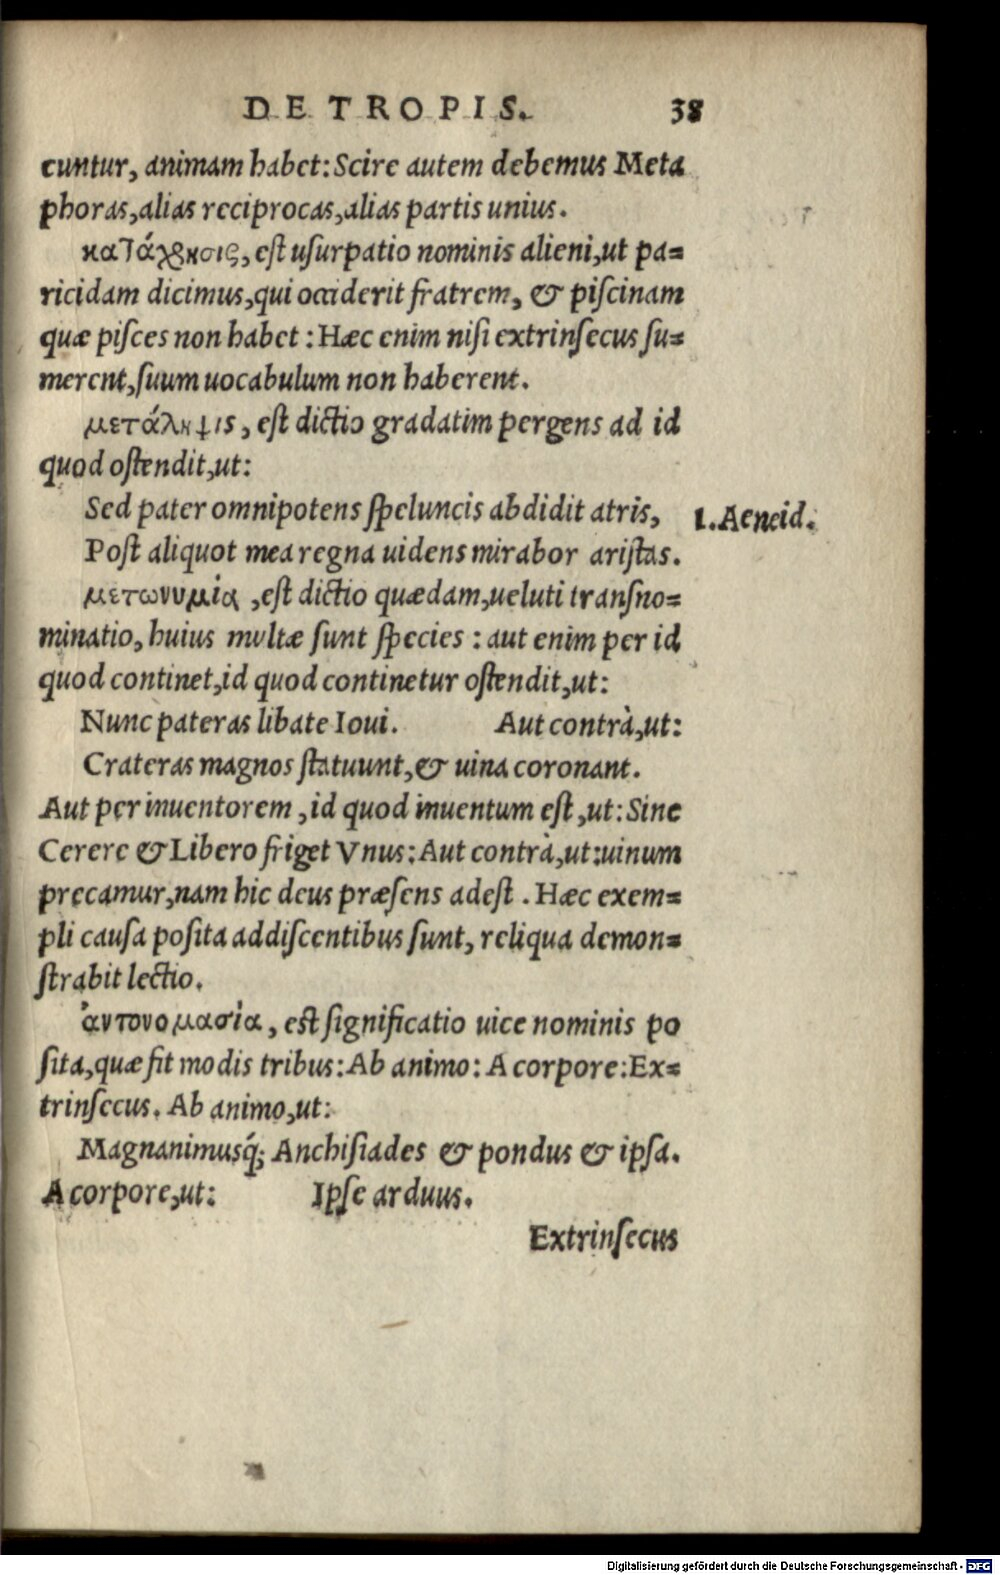 DE TROPIS. 38
cuntur, animam habet: Scire autem debemus Meta
phoras, alias reciprocas, alias partis unius.
κατάχρησις, est usurpatio nominis alieni, ut pa=
ricidam dicimus, qui occiderit fratrem, & piscinam
quæ pisces non habet: Hæc enim nisi extrinsecus su=
merent, suum uocabulum non haberent.
μετάληψις, est dictio gradatim pergens ad id
quod ostendit, ut:
Sed pater omnipotens speluncis abdidit atris, 1. Aeneid.
Post aliquot mea regna uidens mirabor aristas.
μετωνυμία, est dictio quædam, ueluti transno=
minatio, huius multæ sunt species: aut enim per id
quod continet, id quod continetur ostendit, ut:
Nunc pateras libate Ioui. Aut contrà, ut:
Crateras magnos statuunt, & uina coronant.
Aut per inuentorem, id quod inuentum est, ut: Sine
Cerere & Libero friget Vnus: Aut contrà, ut: uinum
precamur, nam hic deus præsens adest. Hæc exem=
pli causa posita addiscentibus sunt, reliqua demon=
strabit lectio.
ἀντονομασία, est significatio uice nominis po
sita, quæ fit modis tribus: Ab animo: A corpore: Ex=
trinsecus. Ab animo, ut:
Magnanimusq́; Anchisiades & pondus & ipsa.
A corpore, ut: Ipse arduus.
Extrinsecus
Digitalisierung gefördert durch die Deutsche Forschungsgemeinschaft - DFG